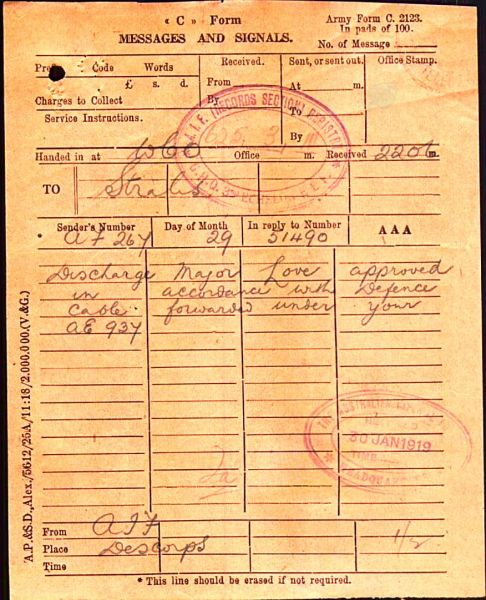 « C » Form
Army Form C. 2123.
In pads of 100.
MESSAGES AND SIGNALS.
No. of Message
Code Words
Received. Sent, or sent out. Office Stamp.
£ s. d.
From
At m.
Charges to Collect
By
To
Service Instructions.
By
Handed in at Office m. Received 2201 m.
TO
Sender's Number Day of Month In reply to Number AAA
AF 267 29 51490
Discharge Major Love approved
in accordance with Defence
cable forwarded under your
AE 937
THE AUSTRALIAN
30 JAN 1919
HEADQUARTERS
From AIF
Place Descorps
1/2
Time
* This line should be erased if not required.
A.P.&S.D., Alex./5612/25A/11:18/2.000.000.(V.&G.)
A.I.F. (RECORDS SECTION)
G.H.Q. ECHELON E.E.F.